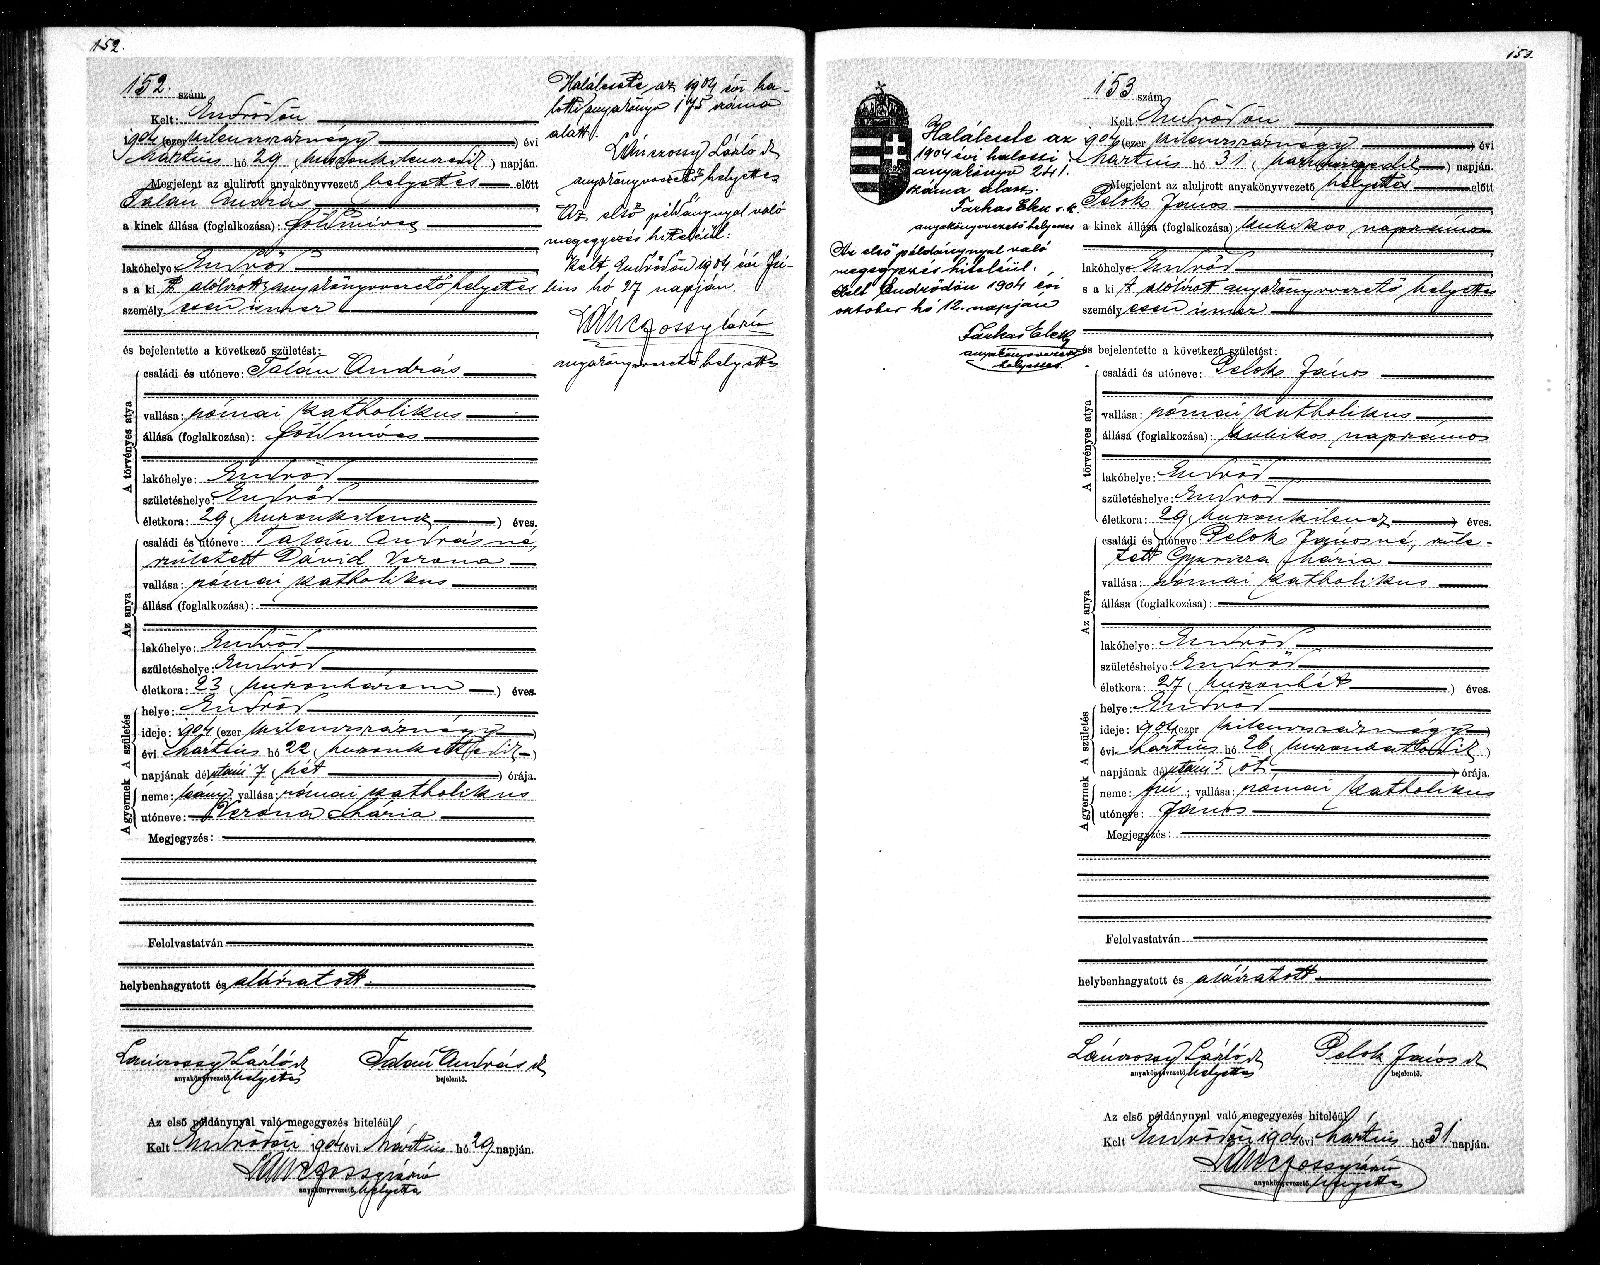 152.
152. szám.
Kelt: Endrődön
1904 (ezer kilenczszáznégy) évi
Mártius hó 29 (huszonkilenczedik) napján.
Megjelent az alulirott anyakönyvvezető helyettes előtt
Talán András
a kinek állása (foglalkozása): földmíves
lakóhelye: Endrőd
s a kit alólirott anyakönyvvezető helyettes
személyesen ismer
és bejelentette a következő születést:
A törvényes atya
családi és utóneve: Talán András
vallása: római katholikus
állása (foglalkozása): földmíves
lakóhelye: Endrőd
születéshelye: Endrőd
életkora: 29 (huszonkilencz) éves.
Az anya
családi és utóneve: Talán Andrásné,
született Dávid Verona
vallása: római katholikus
állása (foglalkozása):
lakóhelye: Endrőd
születéshelye: Endrőd
életkora: 23 (huszonhárom) éves.
A születés
helye: Endrőd
ideje: 1904 (ezer kilenczszáznégy)
évi Mártius hó 22 (huszonkettedik)
napjának délutáni 7 (hét) órája.
A gyermek
neme: leány; vallása: római katholikus
utóneve: Verona Mária
Megjegyzés:
Felolvastatván
helybenhagyatott és aláiratott.
Lánczossy László sk
anyakönyvvezető helyettes
Talán András sk
bejelentő.
Az első példánynyal való megegyezés hiteléül
Kelt Endrődön 1904 évi Mártius hó 29 napján.
Lánczossy László
anyakönyvvezető helyettes
Halálesete az 1904 évi ha-
lotti anyakönyv 175 száma
alatt.
Lánczossy László sk
anyakönyvvezető helyettes
Az első példánynyal való
megegyezés hiteléül:
Kelt Endrődön 1904 évi Jú-
lius hó 27 napján.
Lánczossy László
anyakönyvvezető helyettes
153.
Halálesete az
1904 évi halotti
anyakönyv 241.
száma alatt.
Farkas Elek s. k.
anyakönyvvezető helyettes
Az első példánynyal való
megegyezés hiteléül.
Kelt Endrődön 1904 évi
október hó 12. napján
Farkas Elek
anyakönyvvezető
helyettes.
153 szám
Kelt Endrődön
1904 (ezer kilenczszáznégy) évi
Mártius hó 31 (harminczegyedik) napján.
Megjelent az alulirott anyakönyvvezető helyettes előtt
Pelok János
a kinek állása (foglalkozása): kubikos napszámos
lakóhelye: Endrőd
s a kit alólirott anyakönyvvezető helyettes
személyesen ismer
és bejelentette a következő születést:
A törvényes atya
családi és utóneve: Pelok János
vallása: római katholikus
állása (foglalkozása): kubikos napszámos
lakóhelye: Endrőd
születéshelye: Endrőd
életkora: 29 (huszonkilencz) éves.
Az anya
családi és utóneve: Pelok Jánosné, szüle-
tett Gyuricza Mária
vallása: római katholikus
állása (foglalkozása):
lakóhelye: Endrőd
születéshelye: Endrőd
életkora: 27 (huszonhét) éves.
A születés
helye: Endrőd
ideje: 1904 (ezer kilenczszáznégy)
évi Mártius hó 26 (huszonhatodik)
napjának délutáni 5 (öt) órája.
A gyermek
neme: fiú; vallása: római katholikus
utóneve: János
Megjegyzés:
Felolvastatván
helybenhagyatott és aláiratott.
Lánczossy László sk
anyakönyvvezető helyettes
Pelok János sk
bejelentő.
Az első példánynyal való megegyezés hiteléül
Kelt Endrődön 1904 évi Mártius hó 31 napján.
Lánczossy László
anyakönyvvezető helyettes